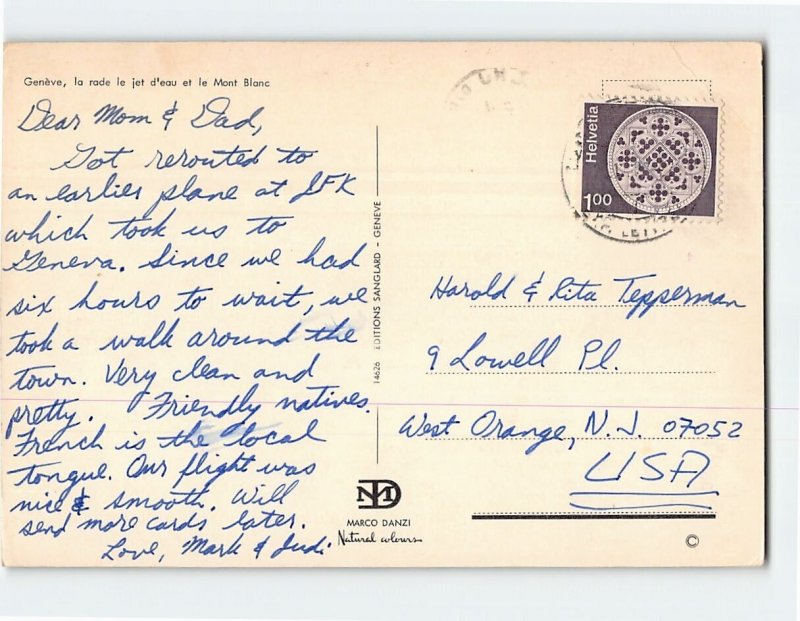 Genève, la rade le jet d'eau et le Mont Blanc
Dear Mom & Dad,
Got rerouted to
an earlier plane at JFK
which took us to
Geneva. Since we had
six hours to wait, we
took a walk around the
town. Very clean and
pretty. Friendly natives.
French is the local
tongue. Our flight was
nice & smooth. Will
send more cards later.
Love, Mark & Judi
14626 EDITIONS SANGLARD - GENEVE
MARCO DANZI
Natural colours
Helvetia
100
Harold & Rita Tepperman
9 Lowell Pl.
West Orange, N.J. 07052
USA
©